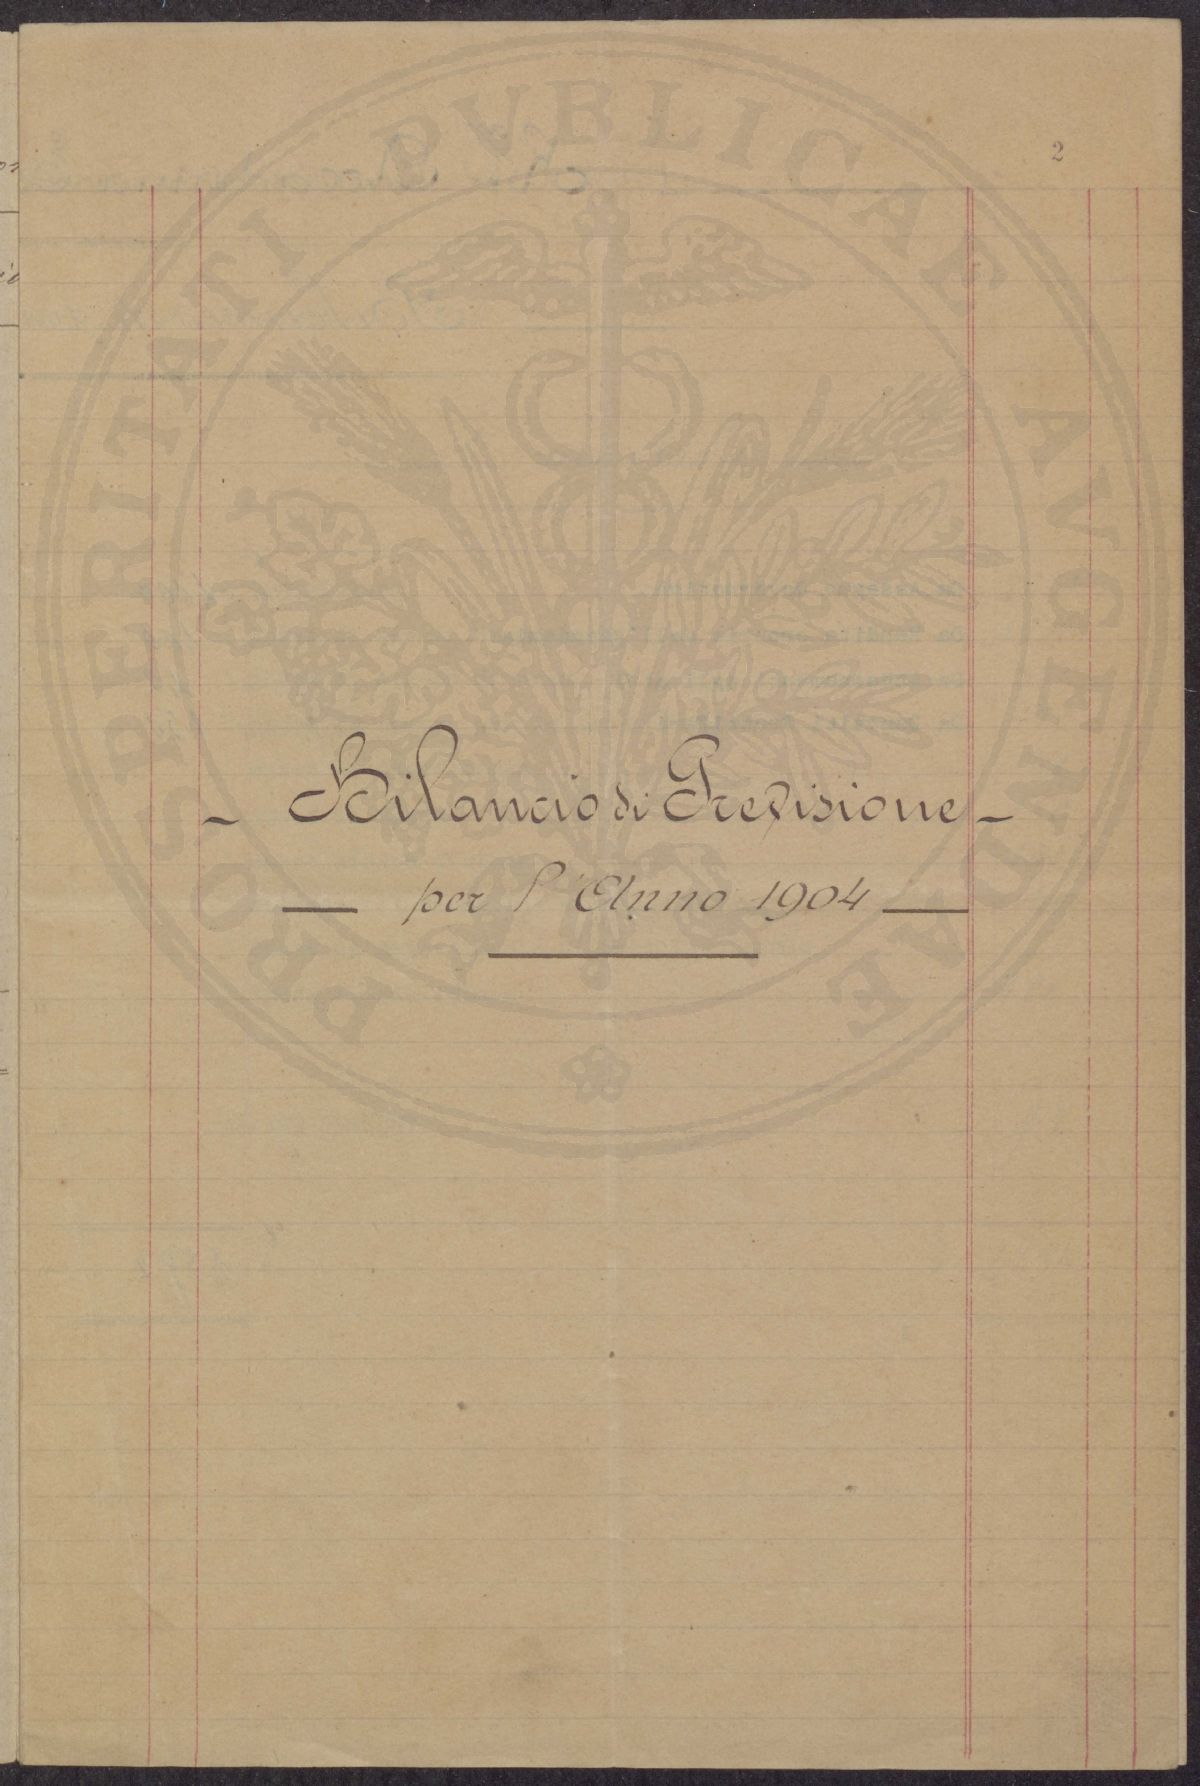 2
PROSPERITATI PVBLICAE AVGENDAE
- Bilancio di Previsione -
— per l'Anno 1904 —